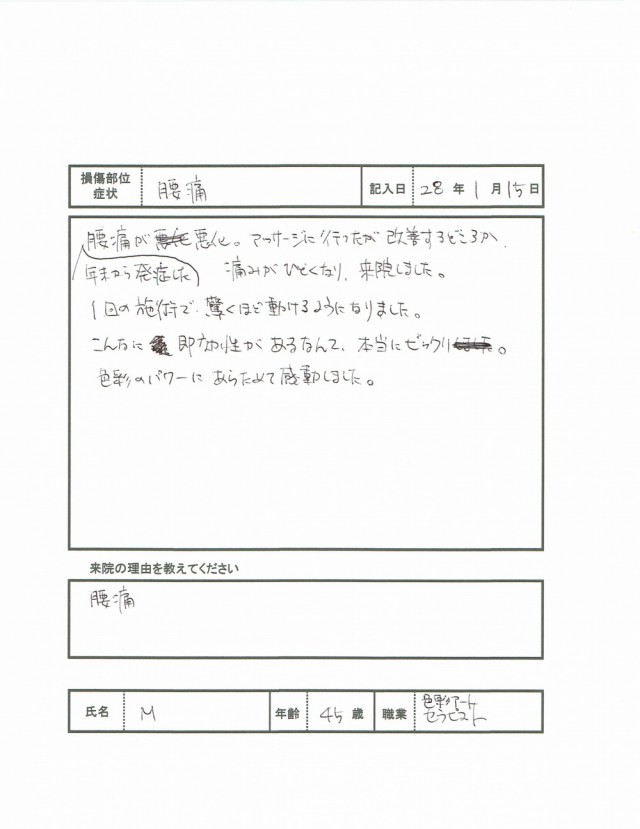 損傷部位
症状
腰痛
記入日 28 年 1 月 15 日
腰痛が悪化。マッサージに行ったが改善するどころか、
年末から発症した 痛みがひどくなり、来院しました。
1回の施術で、驚くほど動けるようになりました。
こんなに即効性があるなんて、本当にビックリ。
色彩のパワーにあらためて感動しました。
来院の理由を教えてください
腰痛
氏名 M 年齢 45 歳 職業 色彩アート
セラピスト